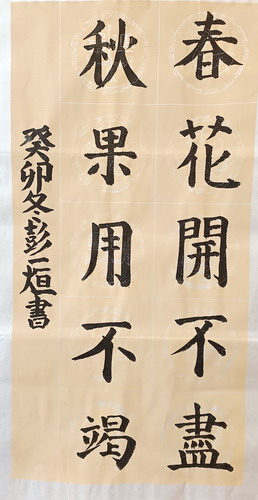 春花開不盡
秋果用不竭
癸卯冬彭一烜書